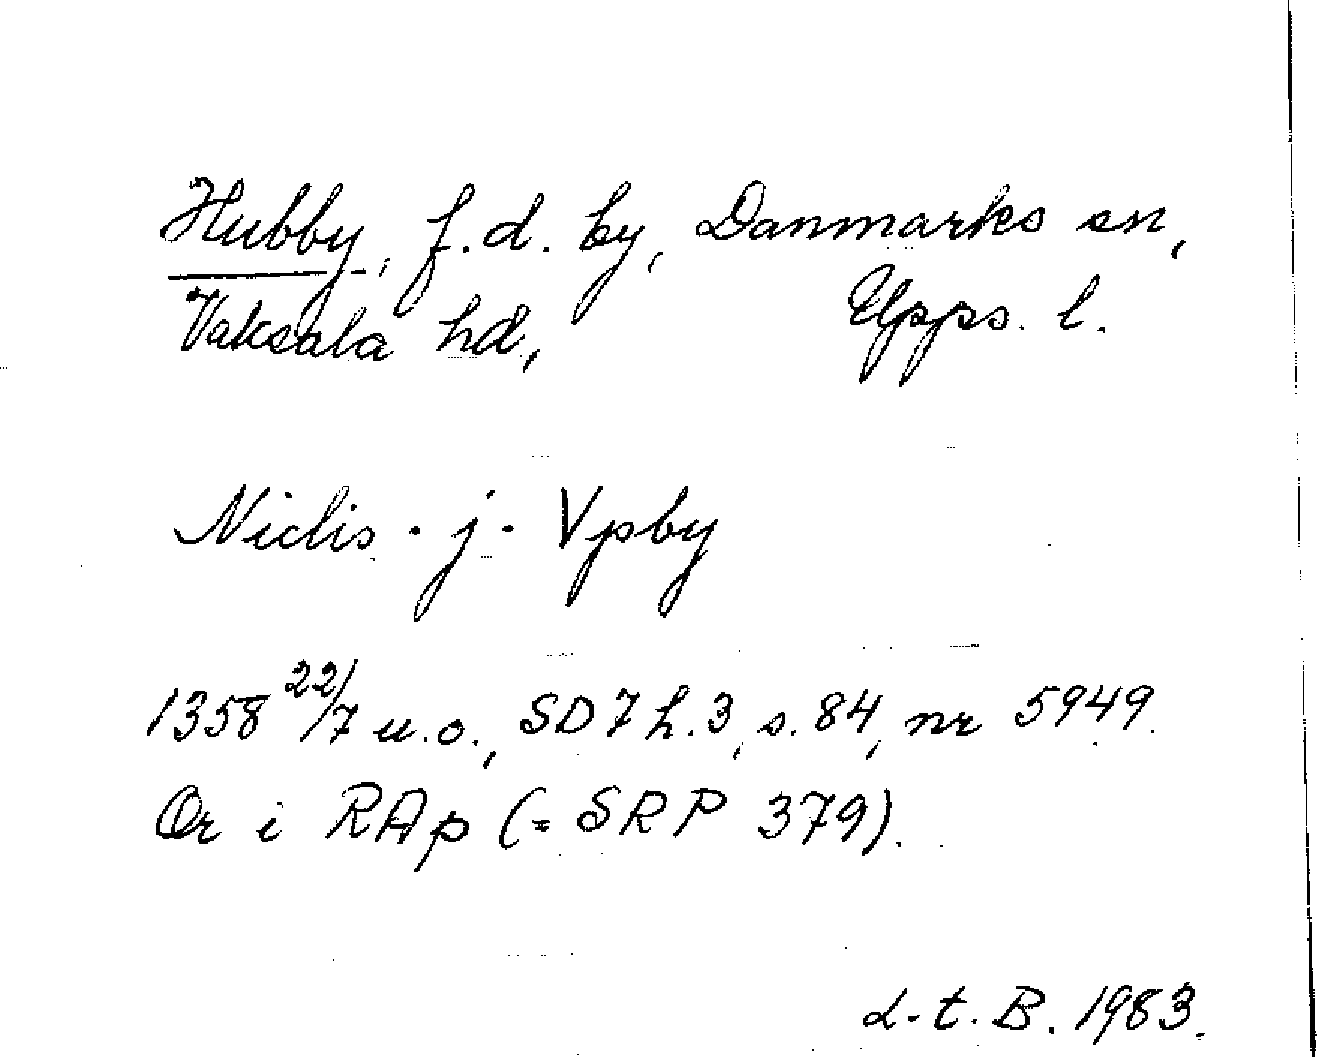 Hubby, f.d. by, Danmarks sn,
Vaksala hd, Upps. l.
Niclis · j · Vpby
1358 22/7 u.o., SD 7 h. 3, s. 84, nr 5949.
Or i RAp (= SRP 379).
L. t. B. 1983.